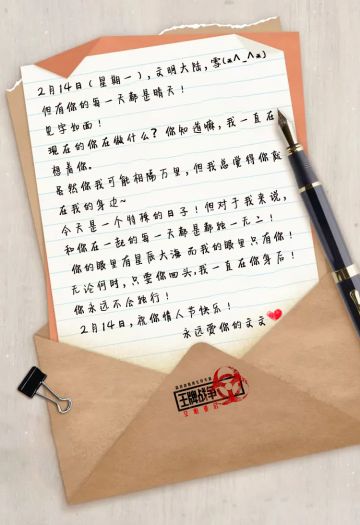 2月14日(星期一),文明大陆,雪(a^_^a)
但有你的每一天都是晴天!
见字如面!
现在的你在做什么?你知道嘛,我一直在
想着你。
虽然你我可能相隔万里,但我总觉得你就
在我的身边~
今天是一个特殊的日子!但对于我来说,
和你在一起的每一天都是独一无二!
你的眼里有星辰大海而我的眼里只有你!
无论何时,只要你回头,我一直在你身后!
你永远不会独行!
2月14日,祝你情人节快乐!
永远爱你的文文
王牌战争
文明重启